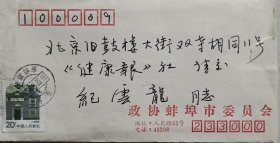 100009
北京旧鼓楼大街双寺胡同11号
《健康報》社
紀雲龍 同志
政协蚌埠市委员会
地址：人民路23号
电话：43208
233000
20分
中国人民邮政